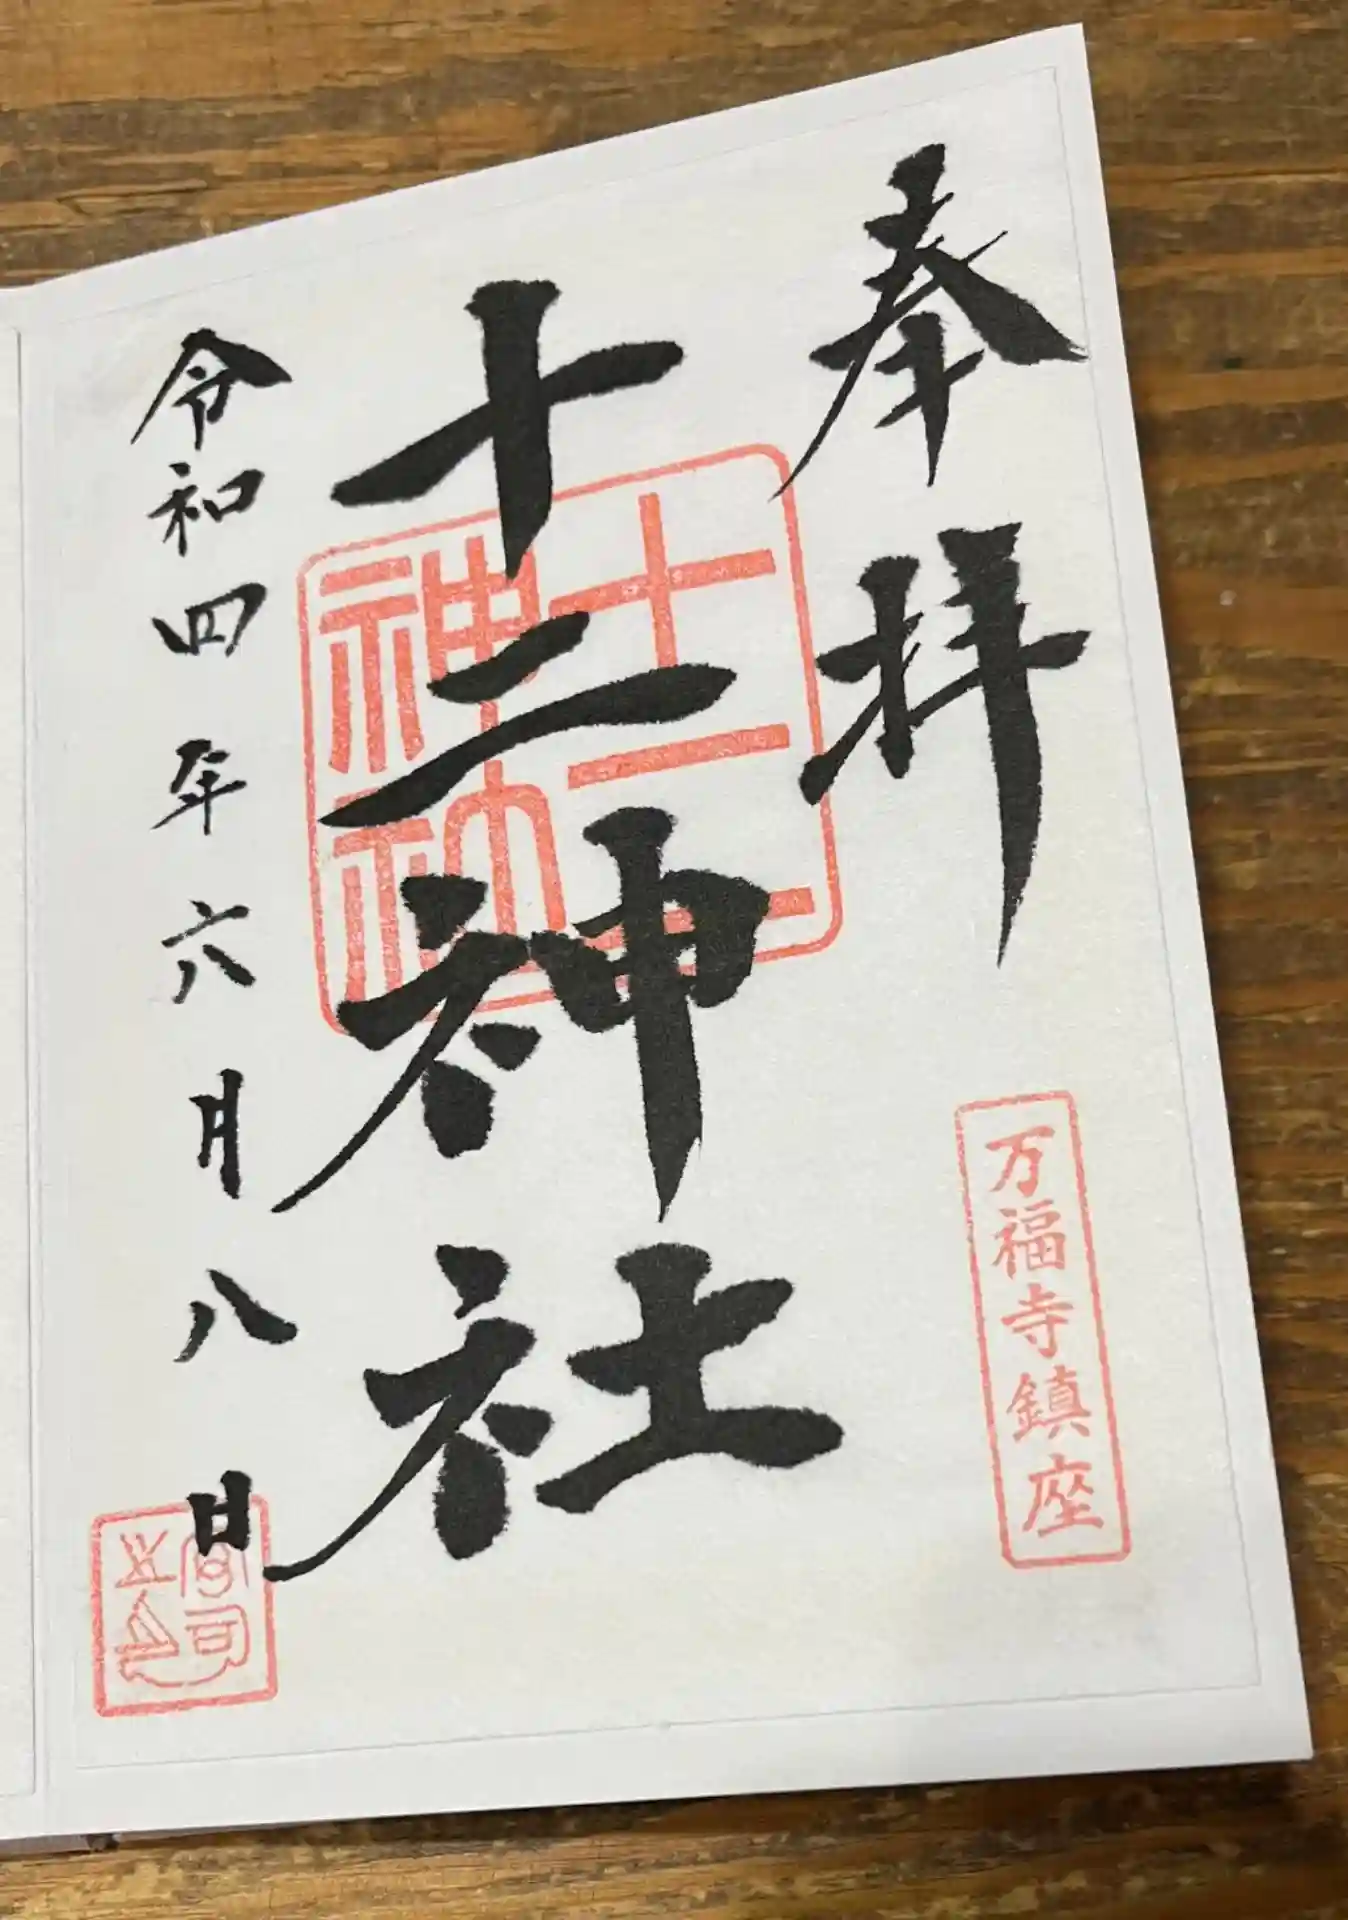 奉拝
万福寺鎮座
十二神社
十二神社
令和四年六月八日
宮司